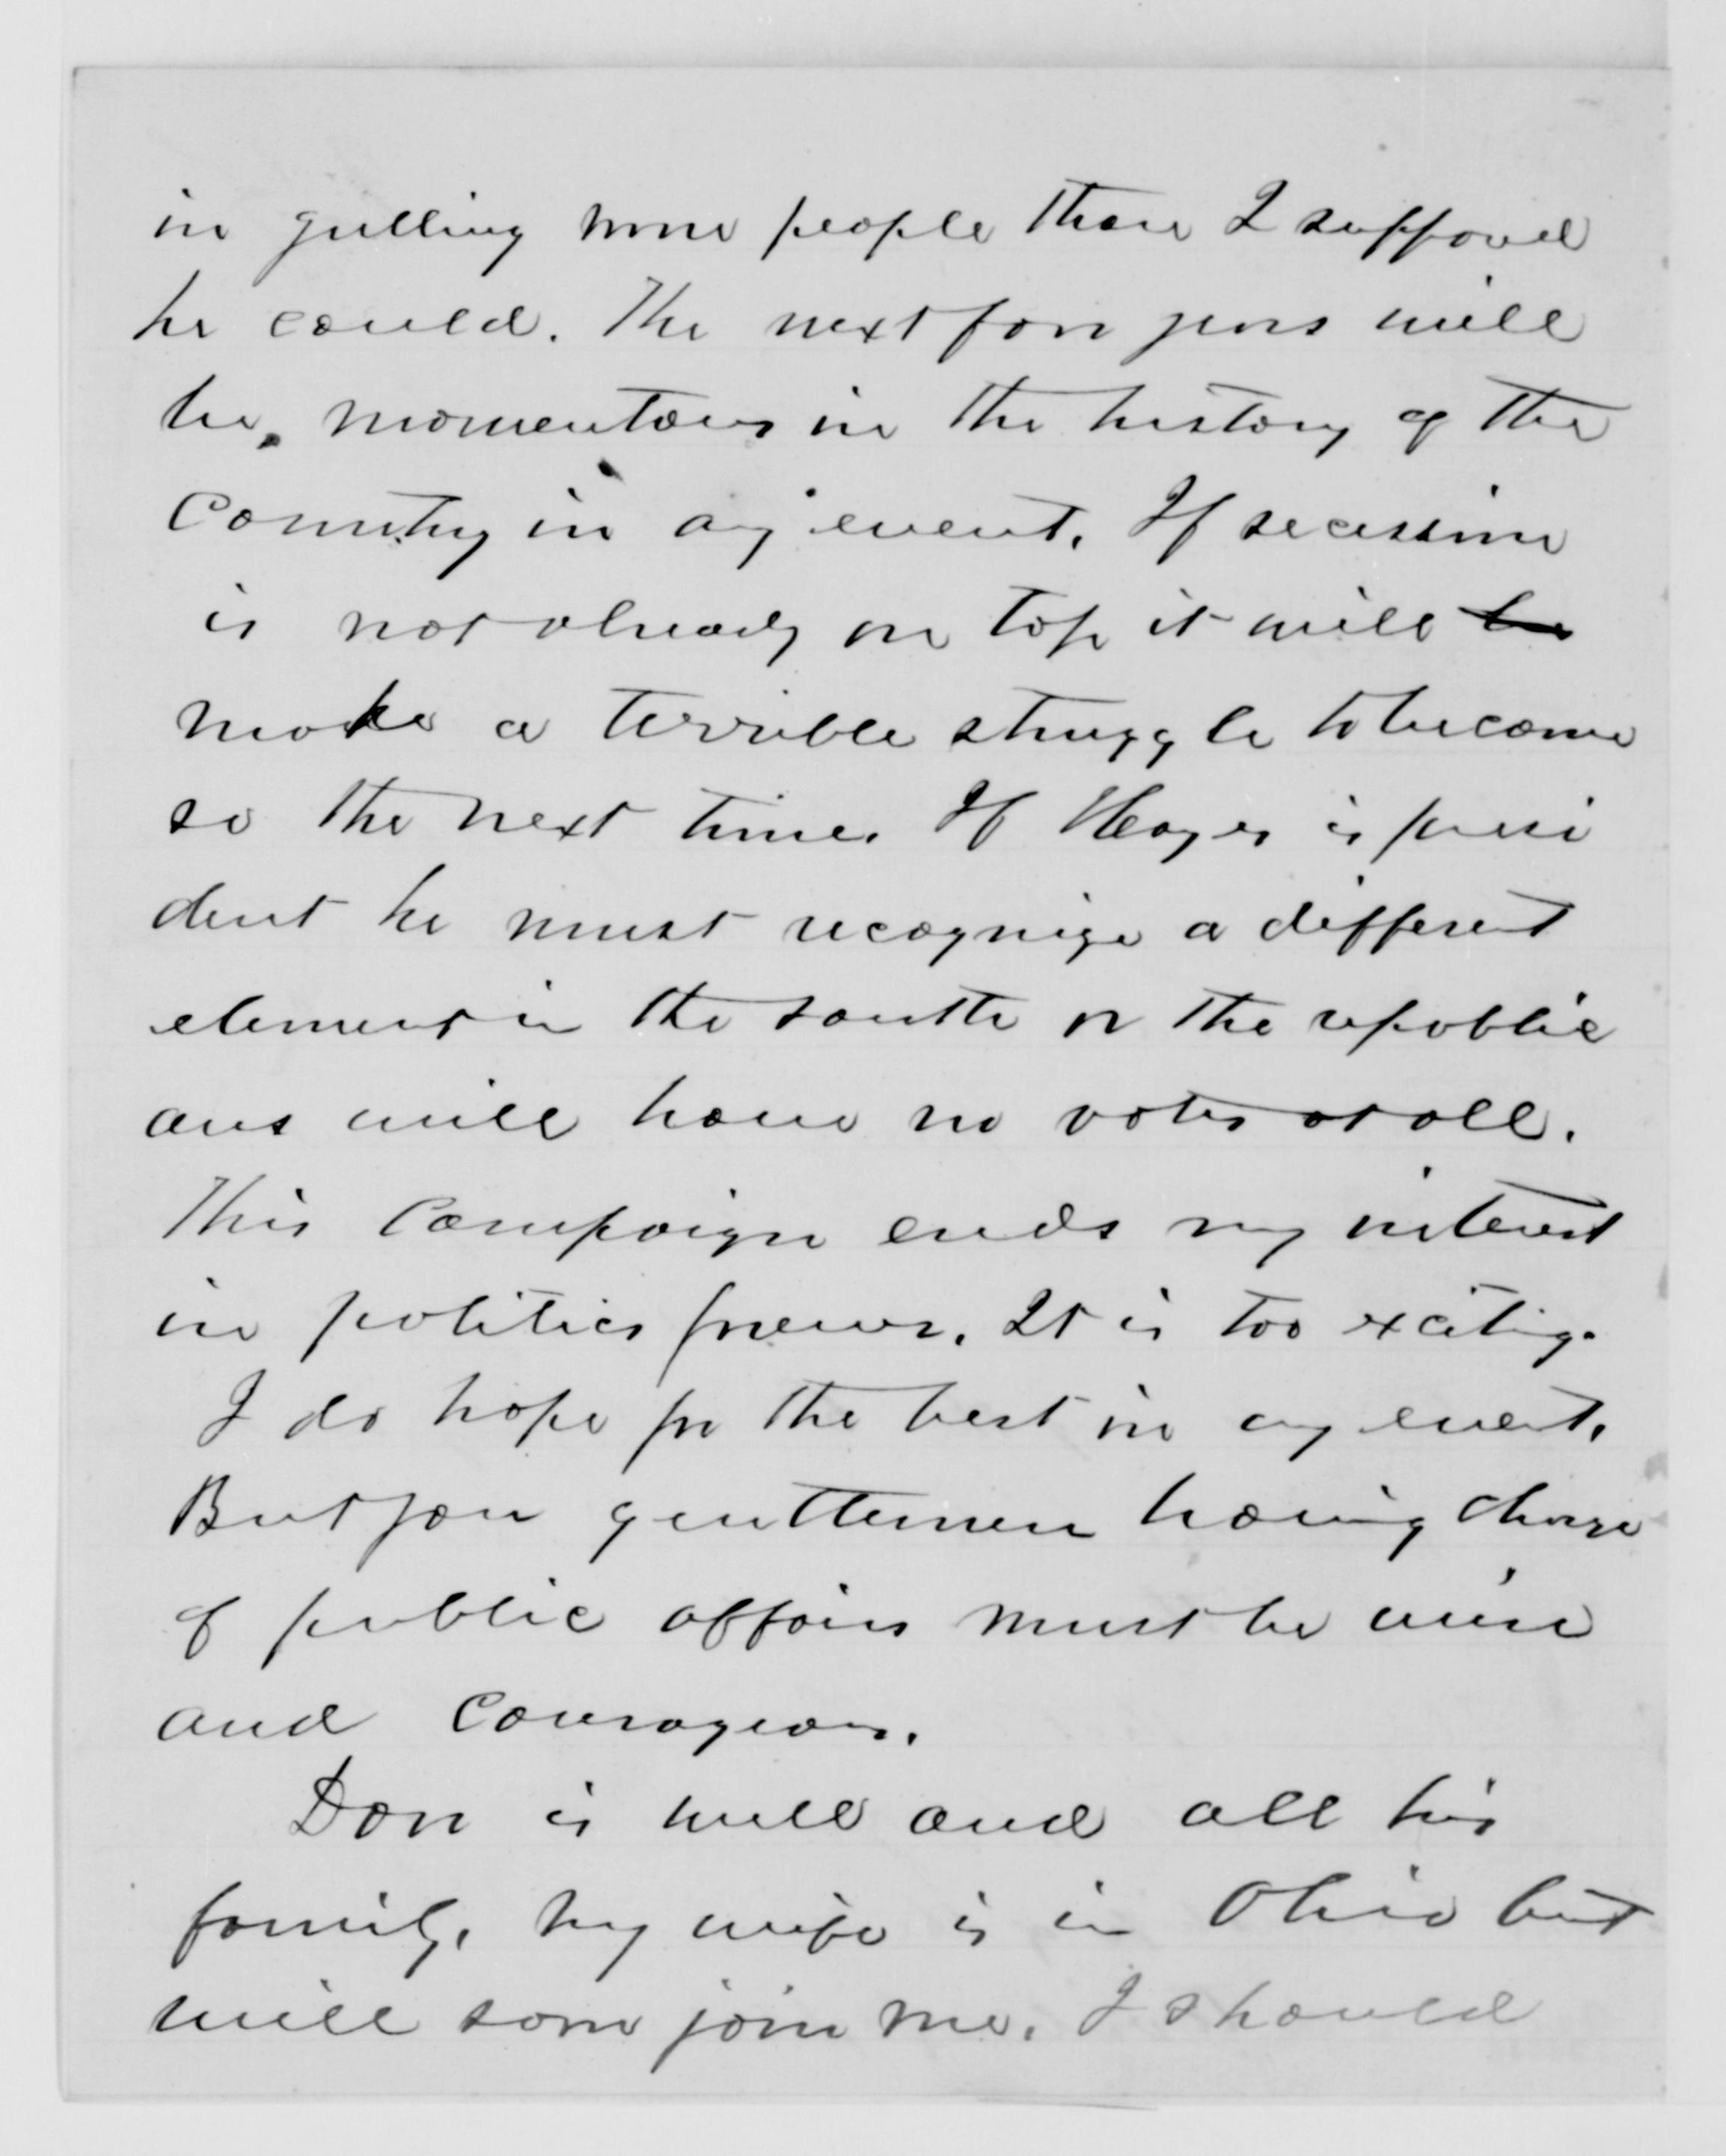 in gulling more people than I supposed
he could. The next four years will
be momentous in the history of the
Country in any event. If secession
is not already on top it will be
make a terrible struggle to become
so the next time. If Hayes is presi
dent he must recognize a different
element in the south or the republic
ans will have no votes at all.
This Campaign ends my interest
in politics forever. It is too exciting.
I do hope for the best in any event.
But you gentlemen having charge
of public affairs must be wise
and Courageous.
Don is well and all his
family. My wife is in Ohio but
will soon join me. I should